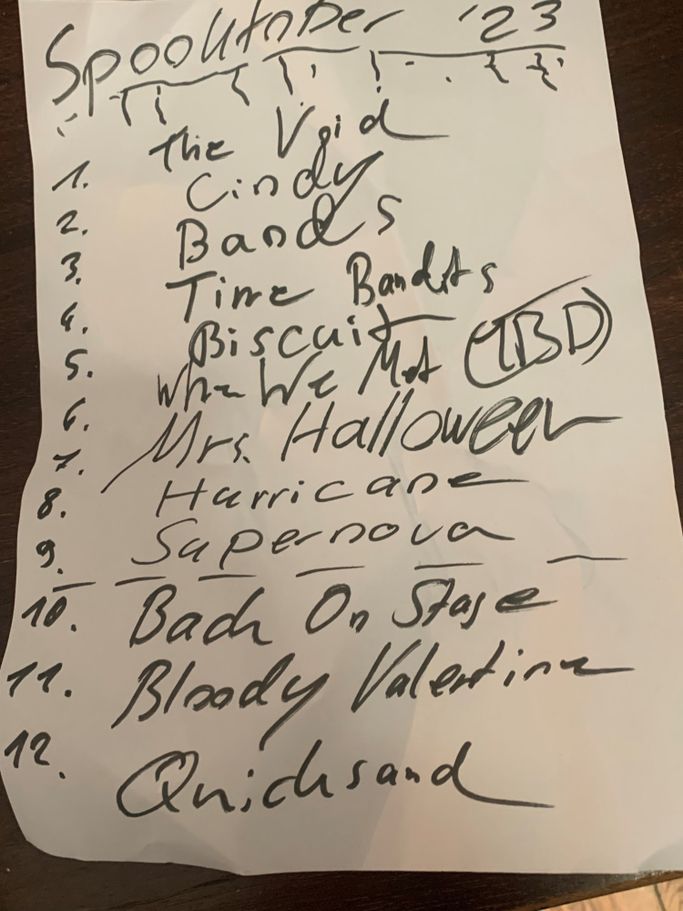 Spooktober '23
1. The Void
2. Cindy
3. Bands
4. Time Bandits
5. Biscuit
6. When We Met (TBD)
7. Mrs. Halloween
8. Hurricane
9. Supernova
10. Back On Stage
11. Bloody Valentine
12. Quicksand